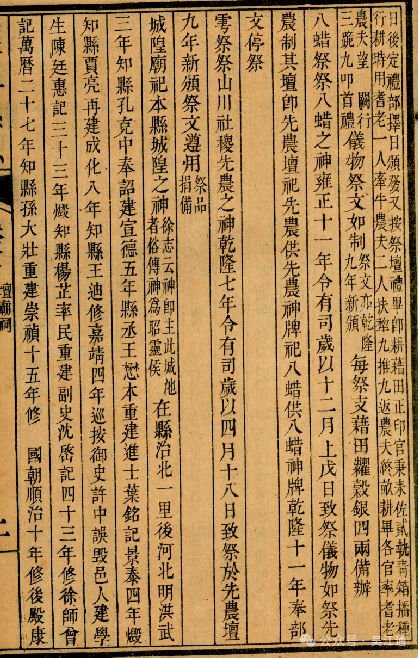 日後定禮部擇日頒發又按祭壇禮畢卽耕藉田正印官秉耒佐貳執靑箱播種
行耕時用耆老一人牽牛農夫二人扶犂九推九返農夫終畝耕畢各官率耆老
農夫望闕行
三跪九叩首禮儀物祭文如制祭文亦乾隆
九年新頒每祭支藉田糶穀銀四兩備辦
八蜡祭祭八蜡之神雍正十一年令有司歲以十二月上戊日致祭儀物如祭先
農制其壇卽先農壇祀先農供先農神牌祀八蜡供八蜡神牌乾隆十一年奉部
文停祭
雩祭祭山川社稷先農之神乾隆七年令有司歲以四月十八日致祭於先農壇
九年新頒祭文遵用祭品
捐備
城隍廟祀本縣城隍之神徐志云神卽主此城池
者俗傳神爲昭靈侯在縣治北一里後河北明洪武
三年知縣孔克中奉詔建宣德五年縣丞王懋本重建進士葉銘記景泰四年燬
知縣賈亮再建成化八年知縣王迪修嘉靖四年巡按御史許中誤毀邑人建學
生陳廷惠記三十三年燬知縣楊芷率民重建副史沈啓記四十三年修徐師曾
記萬曆二十七年知縣孫大壯重建崇禎十五年修 國朝順治十年修後殿康
壇廟祠